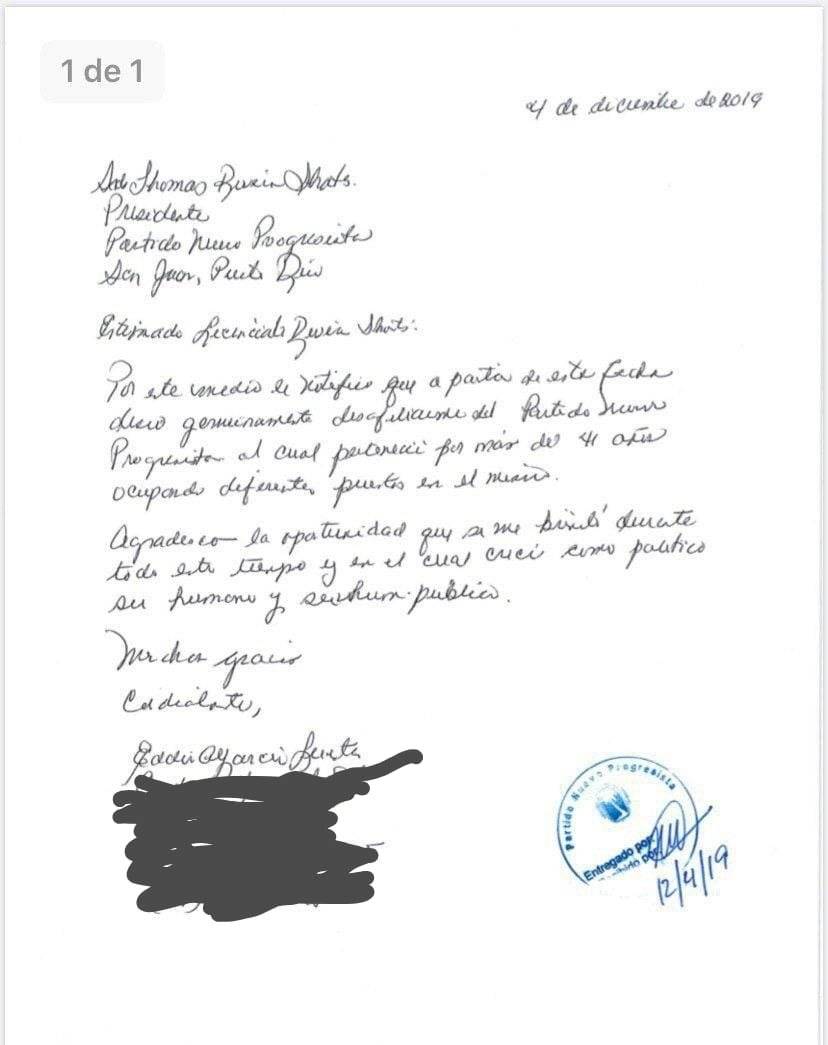 1 de 1
4 de diciembre de 2019
Thomas Rivera Shatz.
Presidente
Partido Nuevo Progresista
San Juan, Puerto Rico
Estimado Licenciado Rivera Shatz:
Por este medio le notifico que a partir de esta fecha
deseo genuinamente desafiliarme del Partido Nuevo
Progresista al cual pertenecí por más de 41 años
ocupando diferentes puestos en el mismo.
Agradesco la oportunidad que se me brindó durante
todo este tiempo y en el cual crecí como político
ser humano y servidor público.
Muchas gracias
Cordialmente,
Eddie García
Partido Nuevo Progresista
Entregado por:
12/4/19